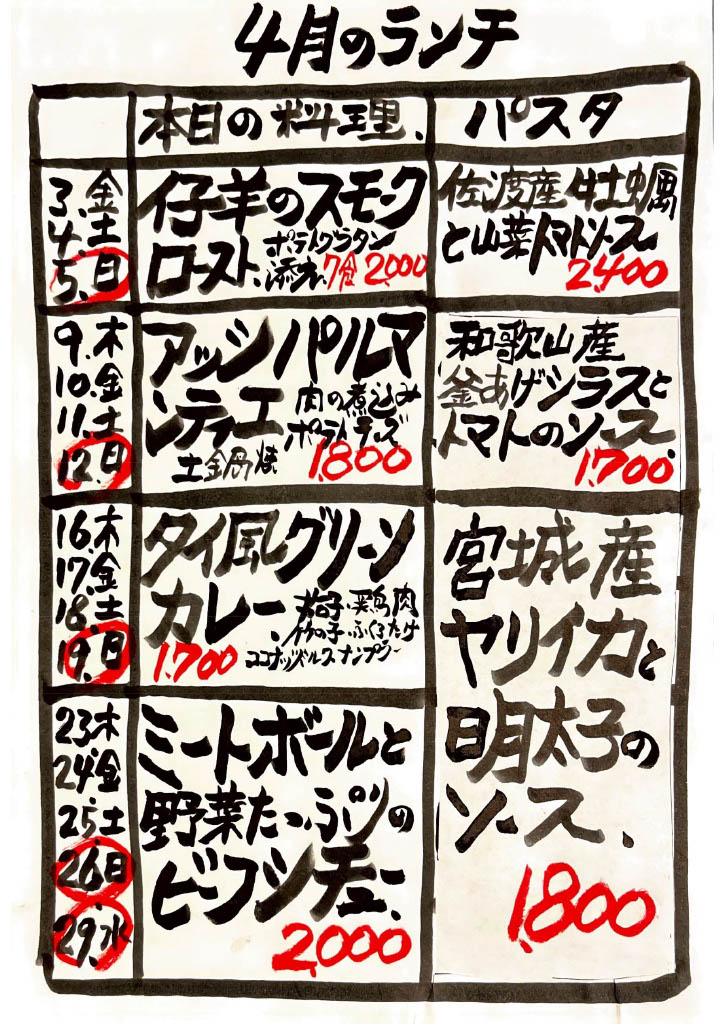 4月のランチ
本日の料理、
パスタ
3.金
4.土
5.日
仔羊のスモーク
ロースト、
ポテトグラタン
添え
2,000
佐渡産 牡蠣
と山菜トマトソース
2,400
9.木
10.金
11.土
12.日
アッシ パルマ
ンティエ
肉の煮込み
ポテト チーズ
土鍋焼
1,800
和歌山産
釜あげシラスと
トマトのソース、
1,700
16.木
17.金
18.土
19.日
タイ風グリーン
カレー、
茄子・鶏肉
竹の子・ふくろたけ
ココナッツミルク・ナンプラー
1,700
宮城産
ヤリイカと
明太子の
ソース、
1,800
23.木
24.金
25.土
26.日
29.水
ミートボールと
野菜たっぷりの
ビーフシチュー、
2,000